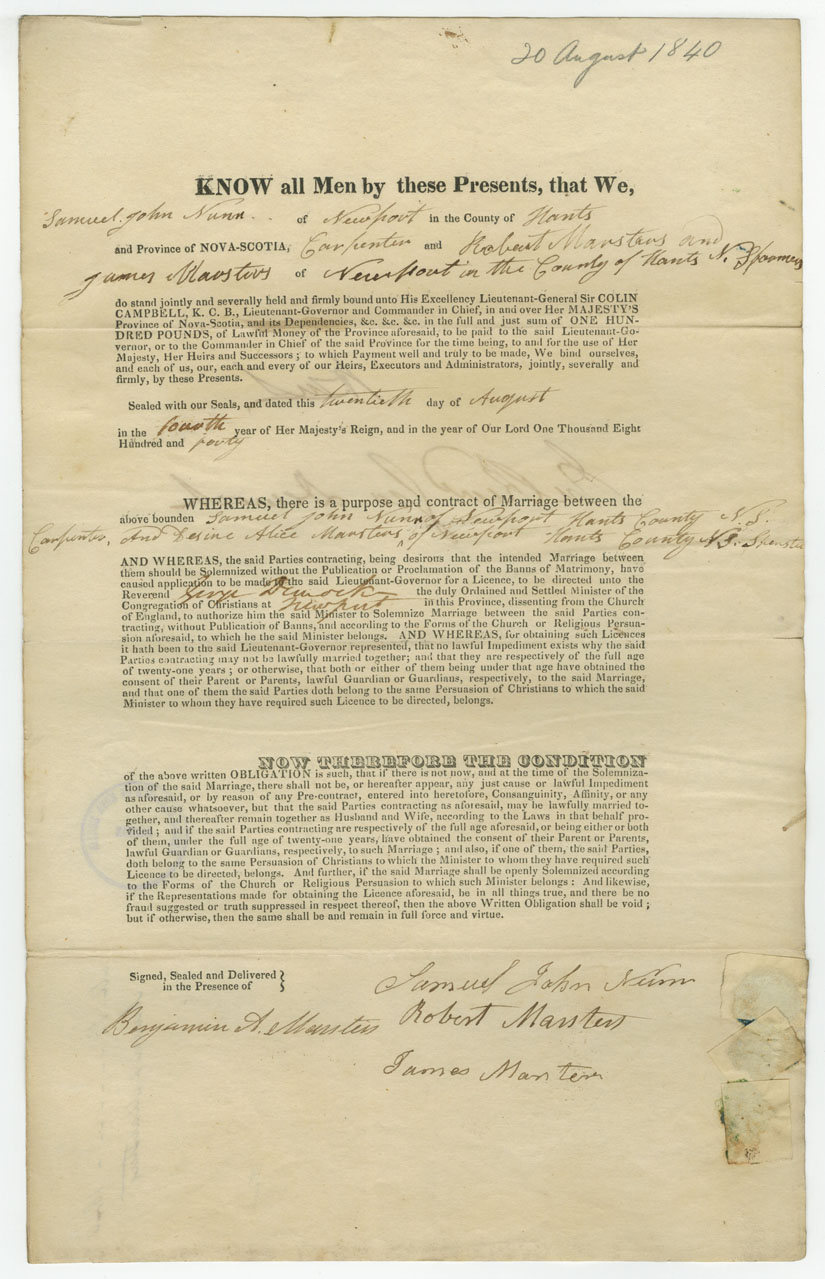 20 August 1840
KNOW all Men by these Presents, that We,
Samuel John Nunn of Newport in the County of Hants
and Province of NOVA-SCOTIA, Carpenter and Robert Marsters and
James Marsters of Newport in the County of Hants N. S farmers
do stand jointly and severally held and firmly bound unto His Excellency Lieutenant-General Sir COLIN
CAMPBELL, K. C. B., Lieutenant-Governor and Commander in Chief, in and over Her MAJESTY'S
Province of Nova-Scotia, and its Dependencies, &c. &c. &c. in the full and just sum of ONE HUN-
DRED POUNDS, of Lawful Money of the Province aforesaid, to be paid to the said Lieutenant-Go-
vernor, or to the Commander in Chief of the said Province for the time being, to and for the use of Her
Majesty, Her Heirs and Successors ; to which Payment well and truly to be made, We bind ourselves,
and each of us, our, each and every of our Heirs, Executors and Administrators, jointly, severally and
firmly, by these Presents.
Sealed with our Seals, and dated this twentieth day of August
in the fourth year of Her Majesty's Reign, and in the year of Our Lord One Thousand Eight
Hundred and forty
WHEREAS, there is a purpose and contract of Marriage between the
above bounden Samuel John Nunn of Newport Hants County N. S.
Carpenter, And Desire Alice Marsters of Newport Hants County N S. Spinster
AND WHEREAS, the said Parties contracting, being desirous that the intended Marriage between
them should be Solemnized without the Publication or Proclamation of the Banns of Matrimony, have
caused application to be made to the said Lieutenant-Governor for a Licence, to be directed unto the
Reverend George Dimock the duly Ordained and Settled Minister of the
Congregation of Christians at Newport in this Province, dissenting from the Church
of England, to authorize him the said Minister to Solemnize Marriage between the said Parties con-
tracting, without Publication of Banns, and according to the Forms of the Church or Religious Persua-
sion aforesaid, to which he the said Minister belongs. AND WHEREAS, for obtaining such Licences
it hath been to the said Lieutenant-Governor represented, that no lawful Impediment exists why the said
Parties contracting may not be lawfully married together; and that they are respectively of the full age
of twenty-one years ; or otherwise, that both or either of them being under that age have obtained the
consent of their Parent or Parents, lawful Guardian or Guardians, respectively, to the said Marriage,
and that one of them the said Parties doth belong to the same Persuasion of Christians to which the said
Minister to whom they have required such Licence to be directed, belongs.
NOW THEREFORE THE CONDITION
of the above written OBLIGATION is such, that if there is not now, and at the time of the Solemniza-
tion of the said Marriage, there shall not be, or hereafter appear, any just cause or lawful Impediment
as aforesaid, or by reason of any Pre-contract, entered into heretofore, Consanguinity, Affinity, or any
other cause whatsoever, but that the said Parties contracting as aforesaid, may be lawfully married to-
gether, and thereafter remain together as Husband and Wife, according to the Laws in that behalf pro-
vided ; and if the said Parties contracting are respectively of the full age aforesaid, or being either or both
of them, under the full age of twenty-one years, have obtained the consent of their Parent or Parents,
lawful Guardian or Guardians, respectively, to such Marriage ; and also, if one of them, the said Parties,
doth belong to the same Persuasion of Christians to which the Minister to whom they have required such
Licence to be directed, belongs. And further, if the said Marriage shall be openly Solemnized according
to the Forms of the Church or Religious Persuasion to which such Minister belongs : And likewise,
if the Representations made for obtaining the Licence aforesaid, be in all things true, and there be no
fraud suggested or truth suppressed in respect thereof, then the above Written Obligation shall be void ;
but if otherwise, then the same shall be and remain in full force and virtue.
Signed, Sealed and Delivered
in the Presence of
Samuel John Nunn
Benjamin A. Marsters
Robert Marsters
James Marsters